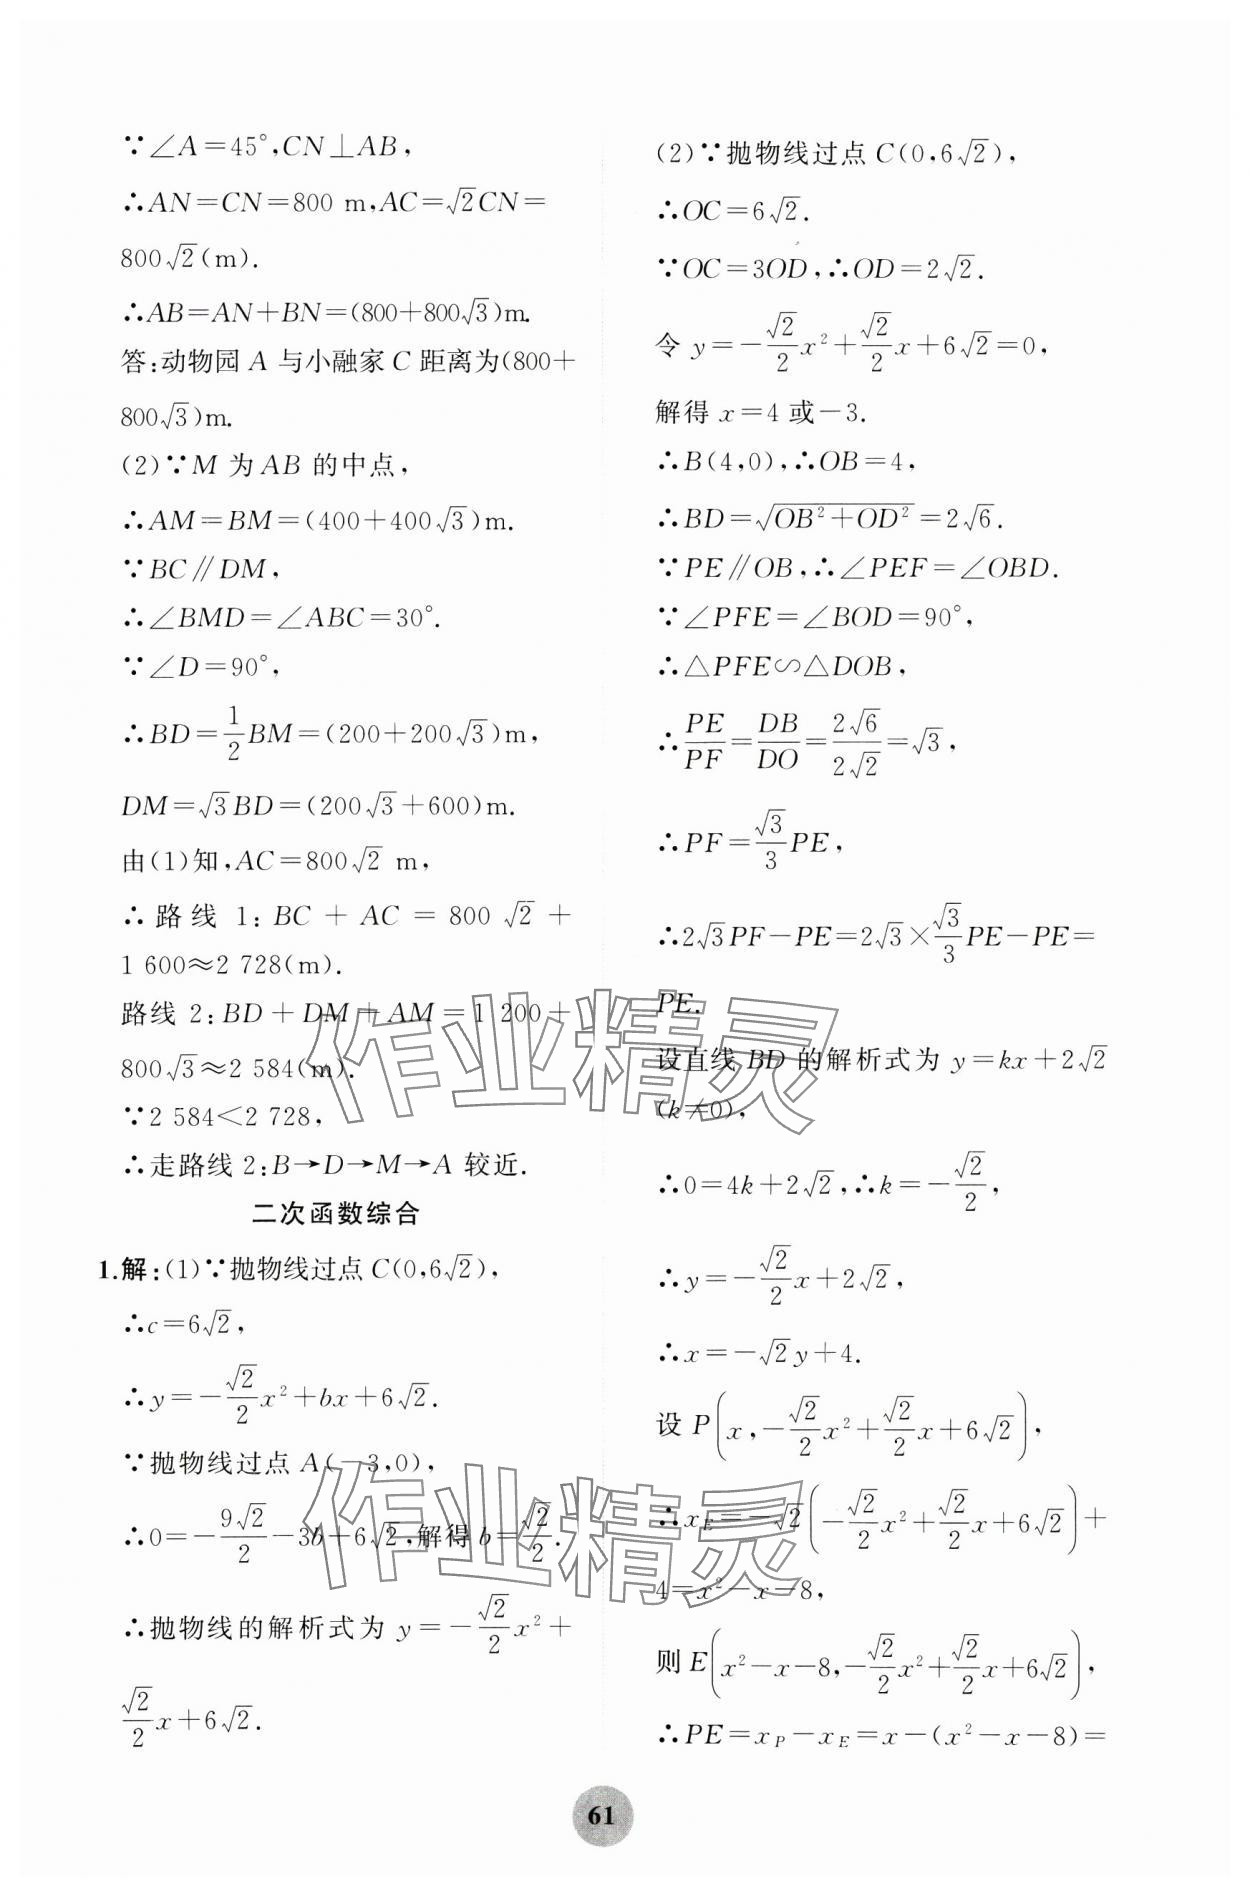 ∵∠A=45°,CN⊥AB,
∴AN=CN=800 m,AC=√2CN=
800√2(m).
∴AB=AN+BN=(800+800√3)m.
答:动物园 A 与小融家 C 距离为(800+
800√3)m.
(2)∵M 为 AB 的中点,
∴AM=BM=(400+400√3)m.
∵BC∥DM,
∴∠BMD=∠ABC=30°.
∵∠D=90°,
∴BD=1/2BM=(200+200√3)m,
DM=√3BD=(200√3+600)m.
由(1)知,AC=800√2 m,
∴路线 1:BC+AC=800√2+
1 600≈2 728(m).
路线 2:BD+DM+AM=1 200+
800√3≈2 584(m).
∵2 584<2 728,
∴走路线 2:B→D→M→A 较近.
二次函数综合
1.解:(1)∵抛物线过点 C(0,6√2),
∴c=6√2,
∴y=-√2/2x²+bx+6√2.
∵抛物线过点 A(-3,0),
∴0=-9√2/2-3b+6√2,解得 b=√2/2.
∴抛物线的解析式为 y=-√2/2x²+
√2/2x+6√2.
(2)∵抛物线过点 C(0,6√2),
∴OC=6√2.
∵OC=3OD,∴OD=2√2.
令 y=-√2/2x²+√2/2x+6√2=0,
解得 x=4 或-3.
∴B(4,0),∴OB=4,
∴BD=√(OB²+OD²)=2√6.
∵PE∥OB,∴∠PEF=∠OBD.
∵∠PFE=∠BOD=90°,
∴△PFE∽△DOB,
∴PE/PF=DB/DO=2√6/2√2=√3,
∴PF=√3/3PE,
∴2√3PF-PE=2√3×√3/3PE-PE=
PE.
设直线 BD 的解析式为 y=kx+2√2
(k≠0),
∴0=4k+2√2,∴k=-√2/2,
∴y=-√2/2x+2√2,
∴x=-√2y+4.
设 P(x,-√2/2x²+√2/2x+6√2),
∴x_E=-√2(-√2/2x²+√2/2x+6√2)+
4=x²-x-8,
则 E(x²-x-8,-√2/2x²+√2/2x+6√2),
∴PE=x_P-x_E=x-(x²-x-8)=
61
作业精灵
作业精灵